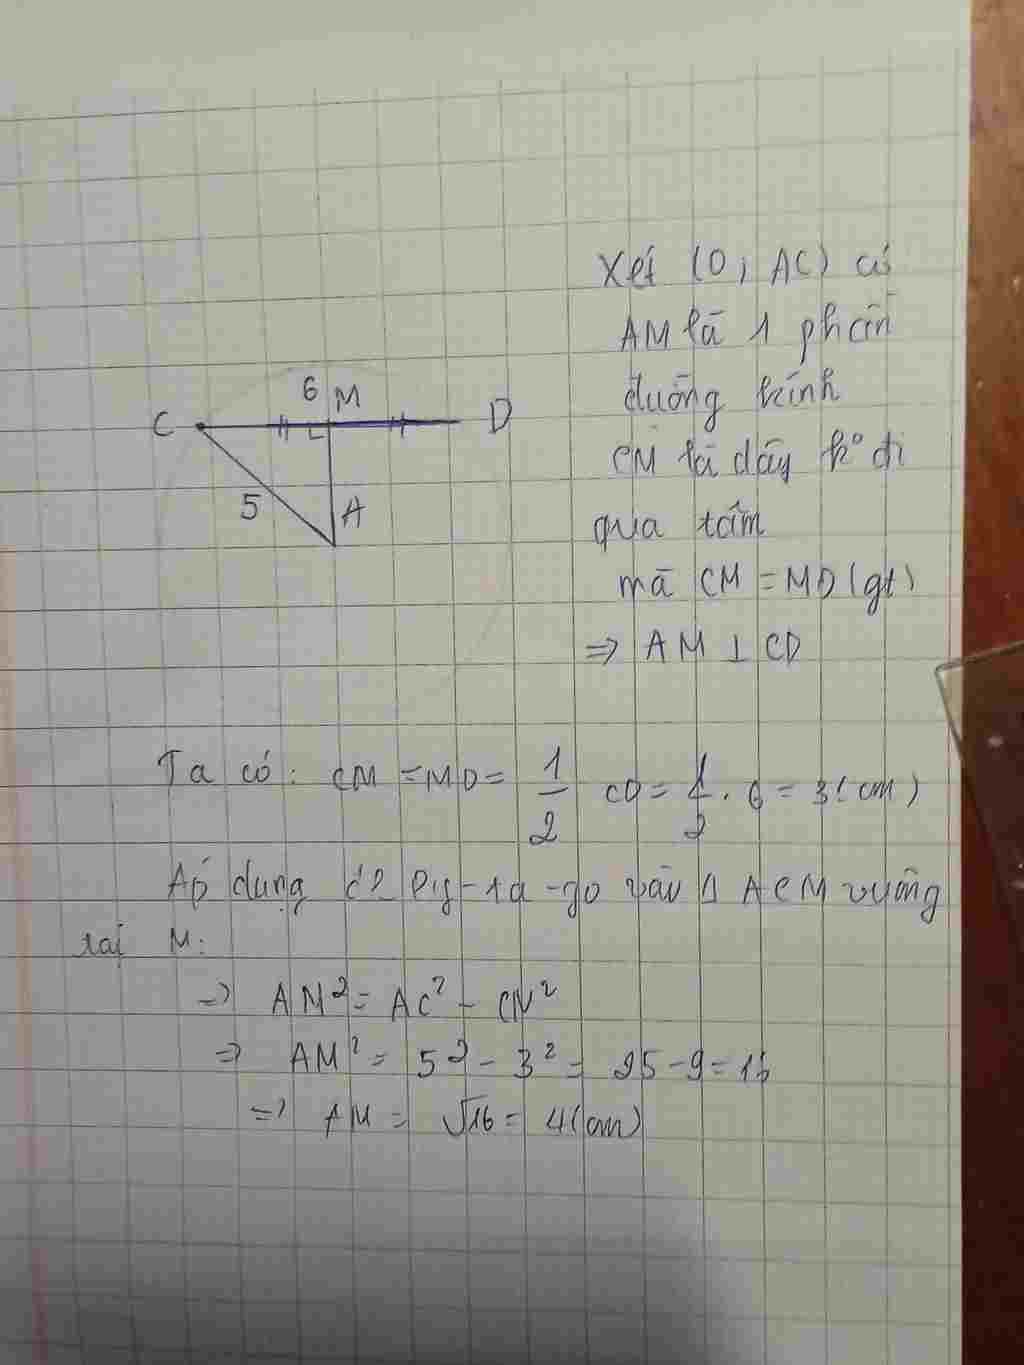 Xét (O; AC) có
AM là 1 phần
đường kính
CM là dây ko đi
qua tâm
mà CM = MD (gt)
=> AM ⊥ CD
6 M
C
D
5
A
Ta có: CM = MD = 1/2 CD = 1/2 . 6 = 3 (cm)
Áp dụng Py-ta-go vào Δ ACM vuông
tại M:
=> AM² = AC² - CM²
=> AM² = 5² - 3² = 25 - 9 = 16
=> AM = √16 = 4 (cm)